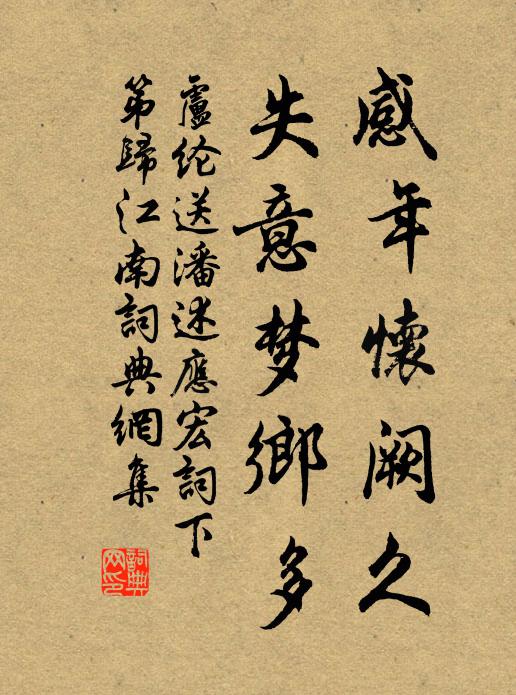 感年懷阙久
失意梦鄉多
盧纶送潘述應宏詞下
第歸江南詞典網集
詞典
网印